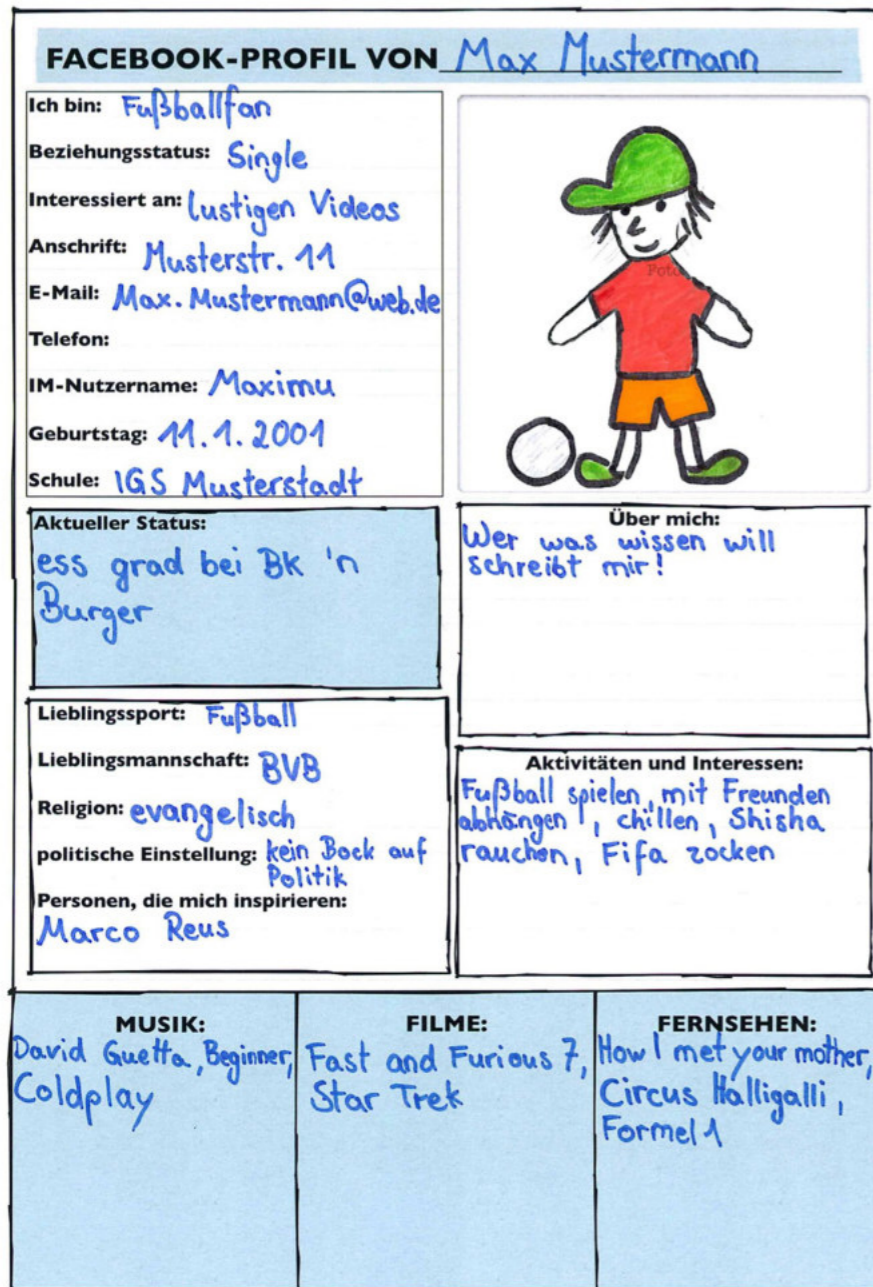 FACEBOOK-PROFIL VON Max Mustermann
Ich bin: Fußballfan
Beziehungsstatus: Single
Interessiert an: lustigen Videos
Anschrift: Musterstr. 11
E-Mail: Max.Mustermann@web.de
Telefon:
IM-Nutzername: Maximu
Geburtstag: 11.1.2001
Schule: IGS Musterstadt
Aktueller Status:
ess grad bei BK 'n
Burger
Über mich:
Wer was wissen will
schreibt mir!
Lieblingssport: Fußball
Lieblingsmannschaft: BVB
Religion: evangelisch
politische Einstellung: kein Bock auf
Politik
Personen, die mich inspirieren:
Marco Reus
Aktivitäten und Interessen:
Fußball spielen, mit Freunden
abhängen, chillen, Shisha
rauchen, Fifa zocken
MUSIK:
David Guetta, Beginner,
Coldplay
FILME:
Fast and Furious 7,
Star Trek
FERNSEHEN:
How I met your mother,
Circus Halligalli,
Formel 1